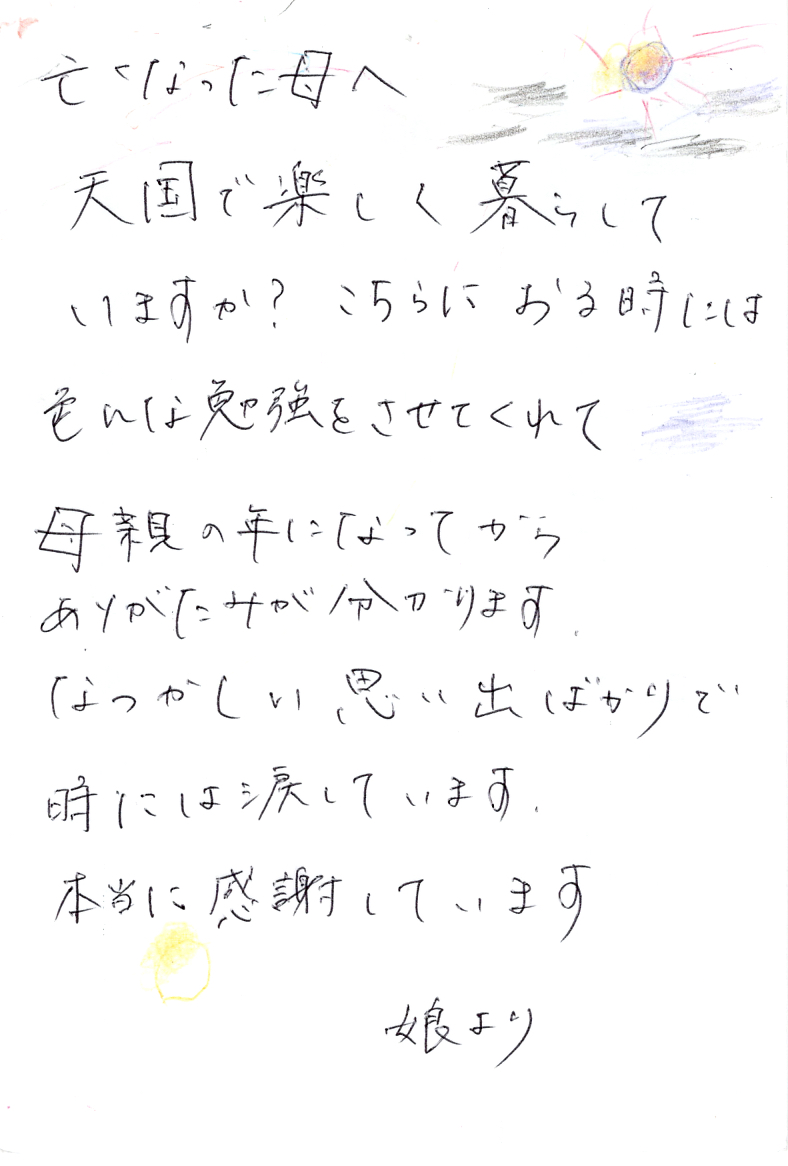 亡くなった母へ
天国で楽しく暮らして
いますか? こちらにおる時には
色んな勉強をさせてくれて
母親の年になってから
ありがたみが分かります.
なつかしい思い出ばかりで
時には涙しています.
本当に感謝しています
娘より